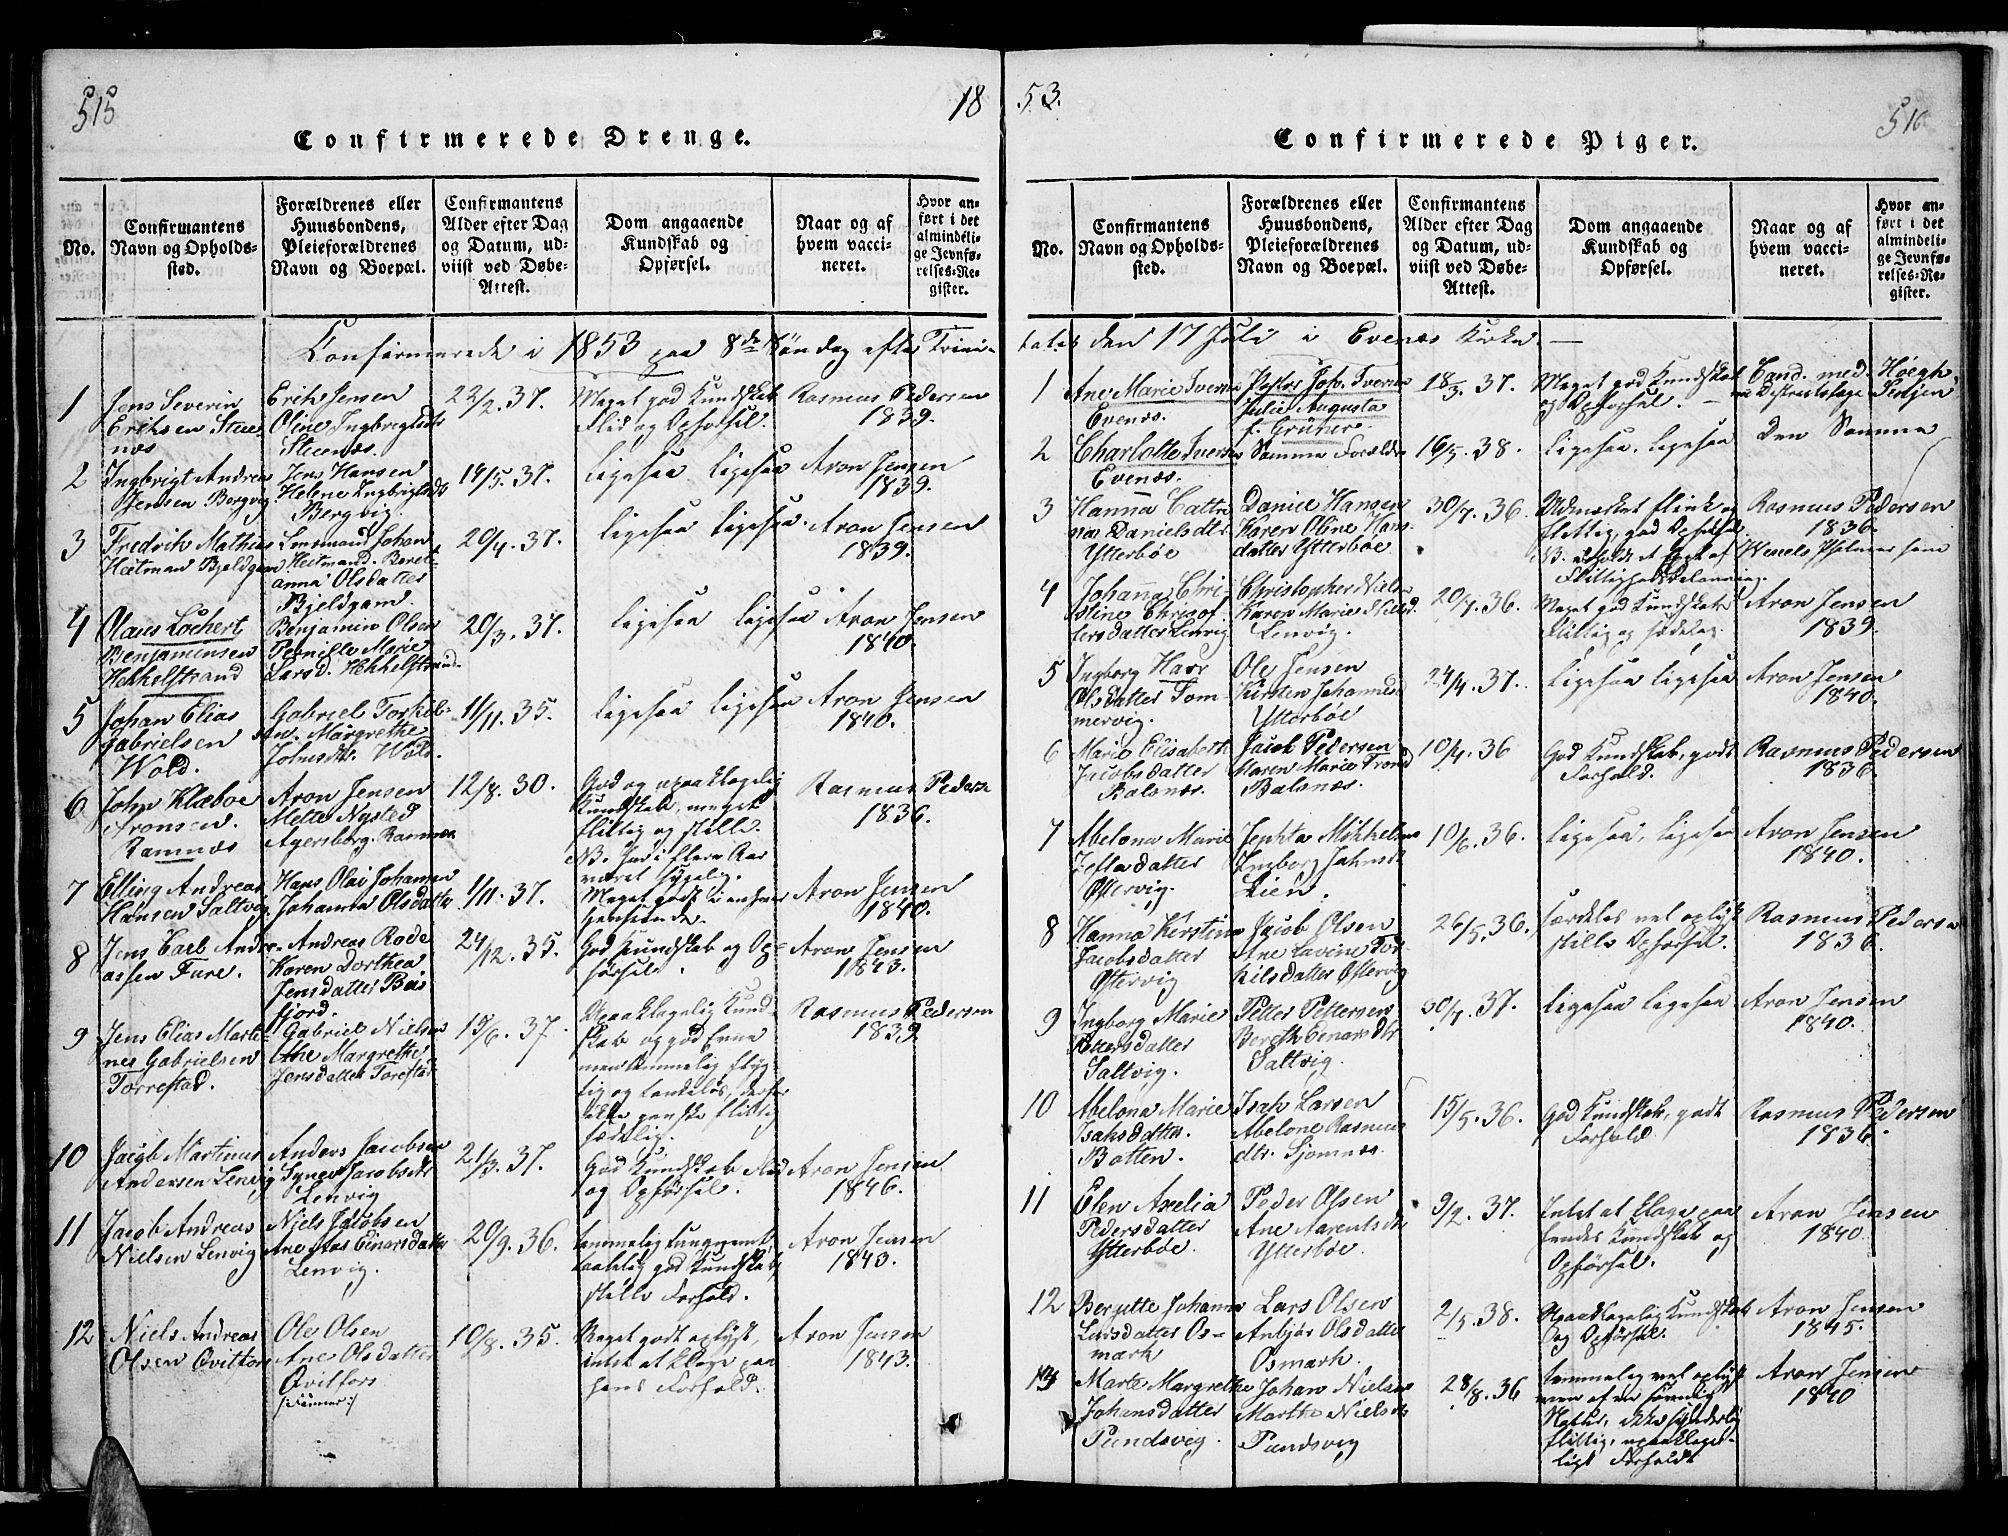 515
18
Confirmerede Drenge.
No.
Confirmantens Navn og Opholds-sted.
Forældrenes eller Huusbondens, Pleieforældrenes Navn og Boepæl.
Confirmantens Alder efter Dag og Datum, ud-viist ved Døbe-Attest.
Dom angaaende Kundskab og Opførsel.
Naar og af hvem vacci-neret.
Hvor an-ført i det almindeli-ge Jevnfø-relses-Re-gister.
Confirmerede i 1853 paa 8de Søndag efter Trini-
1 Jens Severin Eriksen Steenæs
Erik Jensen Oline Ingbrigtsdtr Steenæs.
22/2.37.
Meget god Kundskab Flid og Opførsel.
Rasmus Pedersen 1839.
2 Ingbrigt Andreas Jensen Bergvig
Jens Hansen Helene Ingbrigtsdtr Bergvig.
14/5.37.
ligesaa ligesaa
Aron Jensen 1839.
3 Fredrik Mathias Heitman Bjeldgam
Lensmand Johan Heitmand. Beret-anna Olsdatter Bjeldgam
20/4.37.
ligesaa ligesaa
Aron Jensen 1839.
4 Olaus Lochert Benjaminsen Hekkelstrand
Benjamin Olsen Pernille Marie Larsd. Hekkelstrand
20/3.37.
ligesaa ligesaa
Aron Jensen 1840.
5 Johan Elias Gabrielsen Wold.
Gabriel Torkel-sen. Margrethe Johnsdtr. Wold.
11/11.35.
ligesaa ligesaa
Aron Jensen 1840.
6 John Klæboe Aronsen. Ramnæs
Aron Jensen Mette Nysted Agersborg. Ramnæs
12/8.30.
God og upaaklagelig Kundskab, meget flittig og stille. NB. har i flere Aar været sygelig.
Rasmus Pedersen 1836.
7 Elling Andreas Hansen Saltvig
Hans Olai Johansen Johanna Olsdatter
1/11.37.
Meget godt i enhver henseende.
Aron Jensen 1840.
8 Jens Carl Andre-assen Fure.
Andreas Rode Karen Dorthea Jensdatter Beisfjord.
24/12.35.
God Kundskab og Op-førsel.
Aron Jensen 1843.
9 Jens Elias Marti-nes Gabrielsen Torrestad.
Gabriel Nielsen Ane Margrethe Jensdatter Torestad
15/6.37.
Upaaklagelig Kund-skab og god Evne men temmelig flyg-tig og tankeløs, derfor ikke ganske flittig sædelig.
Rasmus Pedersen 1839
10 Jacob Martinus Andersen Lenvig
Anders Jacobsen Synev Jacobsdtr Lenvig
21/3.37.
God Kundskab Flid og Opførsel.
Aron Jensen 1846.
11 Jacob Andreas Nielsen Lenvig
Niels Jacobsen Ane Einarsdatter Lenvig.
20/9.36.
temmelig tungnemt taalelig god Kundskab, stille Forhold.
Aron Jensen 1843.
12 Niels Andreas Olsen Qvitfors
Ole Olsen Ane Olsdatter Qvitfors
10/8.35.
Meget godt oplyst, intet at klage paa hans Forhold.
Aron Jensen 1843.
53.
516
Confirmerede Piger.
No.
Confirmantens Navn og Opholds-sted.
Forældrenes eller Huusbondens, Pleieforældrenes Navn og Boepæl.
Confirmantens Alder efter Dag og Datum, ud-viist ved Døbe-Attest.
Dom angaaende Kundskab og Opførsel.
Naar og af hvem vacci-neret.
Hvor an-ført i det almindeli-ge Jevnfø-relses-Re-gister.
tatis den 17 Juli i Evenæs Kirke.
1 Ane Marie Iversen Evenæs.
Pastor Joh. Iversen Julie Augusta f. Grüner.
18/3.37.
Meget god Kundskab og Opførsel.
Cand. med. Høegh Distriktslæge Senjen
2 Charlotte Iversen Evenæs.
Samme Forældre
16/5.38.
ligesaa. ligesaa
Den Samme
3 Hanna Cathri-na Danielsdtr Ytterbøe
Daniel Hansen Karen Oline Hans-datter Ytterbøe
30/7.36.
Udmærket flink og flittig, god Opførsel NB. Flittigheds Belønning.
Rasmus Pedersen 1836.
4 Johanna Chri-stine Christof-fersdatter Lenvig
Christopher Nielsen Karen Marie Nielsd. Lenvig.
20/7.36.
Meget god Kundskab flittig og sædelig.
Aron Jensen 1839.
5 Ingborg Harr Olsdatter Tom-mervig.
Ole Jensen Kirsten Johannesd. Ytterbøe
24/4.37.
ligesaa ligesaa
Aron Jensen 1840.
6 Marie Elisabeth Jacobsdatter Balsnæs.
Jacob Pedersen Maren Marie Trond Balsnæs.
10/4.36
God Kundskab, godt Forhold.
Rasmus Pedersen 1836.
7 Abelona Marie Jeftadatter Ostervig.
Jephta Mikkelsen Ingborg Johnsd. Lien.
10/6.36.
ligesaa, ligesaa
Aron Jensen 1840.
8 Hanna Kirstina Jacobsdatter Ostervig
Jacob Olsen Ane Lavine Tor-kilsdatter Ostervig
26/5.36.
særdeles vel oplyst stille Opførsel.
Rasmus Pedersen 1836.
9 Ingborg Marie Pettersdatter Saltvig.
Petter Pettersen Berith Einarsdtr Saltvig.
30/7.37.
ligesaa ligesaa
Aron Jensen 1840.
10 Abelona Marie Isaksdatter. Botten.
Isak Larsen Abelone Rasmus-dtr. Sjomnæs.
15/5.36.
God Kundskab, godt Forhold.
Rasmus Pedersen 1836.
11 Elen Axelia Pedersdatter Ytterbøe.
Peder Olsen Ane Aarentsdtr Ytterbøe.
9/2.37.
Intet at klage paa hendes Kundskab og Opførsel.
Aron Jensen 1840.
12 Bergitte Johanna Larsdatter Os-mark
Lars Olsen Anbjør Olsdatter Osmark.
2/5.38.
Upaaklagelig Kundskab og Opførsel.
Aron Jensen 1845.
13 Marte Margrethe Johansdatter Pundsvig.
Johan Nielsen Marthe Nielsdtr Pundsvig
28/8.36
temmelig vel oplyst men af en Natur, ikke synderlig flittig, upaaklage-ligt Forholdt
Aron Jensen 1840